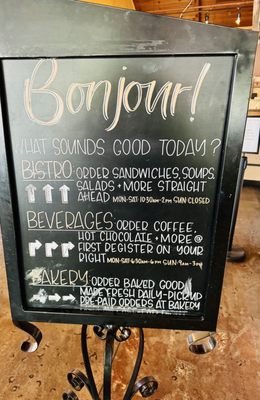 Bonjour!
WHAT SOUNDS GOOD TODAY?
BISTRO-ORDER SANDWICHES, SOUPS,
SALADS + MORE STRAIGHT
AHEAD MON-SAT 10:30AM-2PM SUN CLOSED
BEVERAGES-ORDER COFFEE,
HOT CHOCOLATE + MORE @
FIRST REGISTER ON YOUR
RIGHT MON-SAT 6:30AM-6PM SUN 9AM-3PM
BAKERY-ORDER BAKED GOODS
MADE FRESH DAILY-PICKUP
PRE-PAID ORDERS AT BAKERY